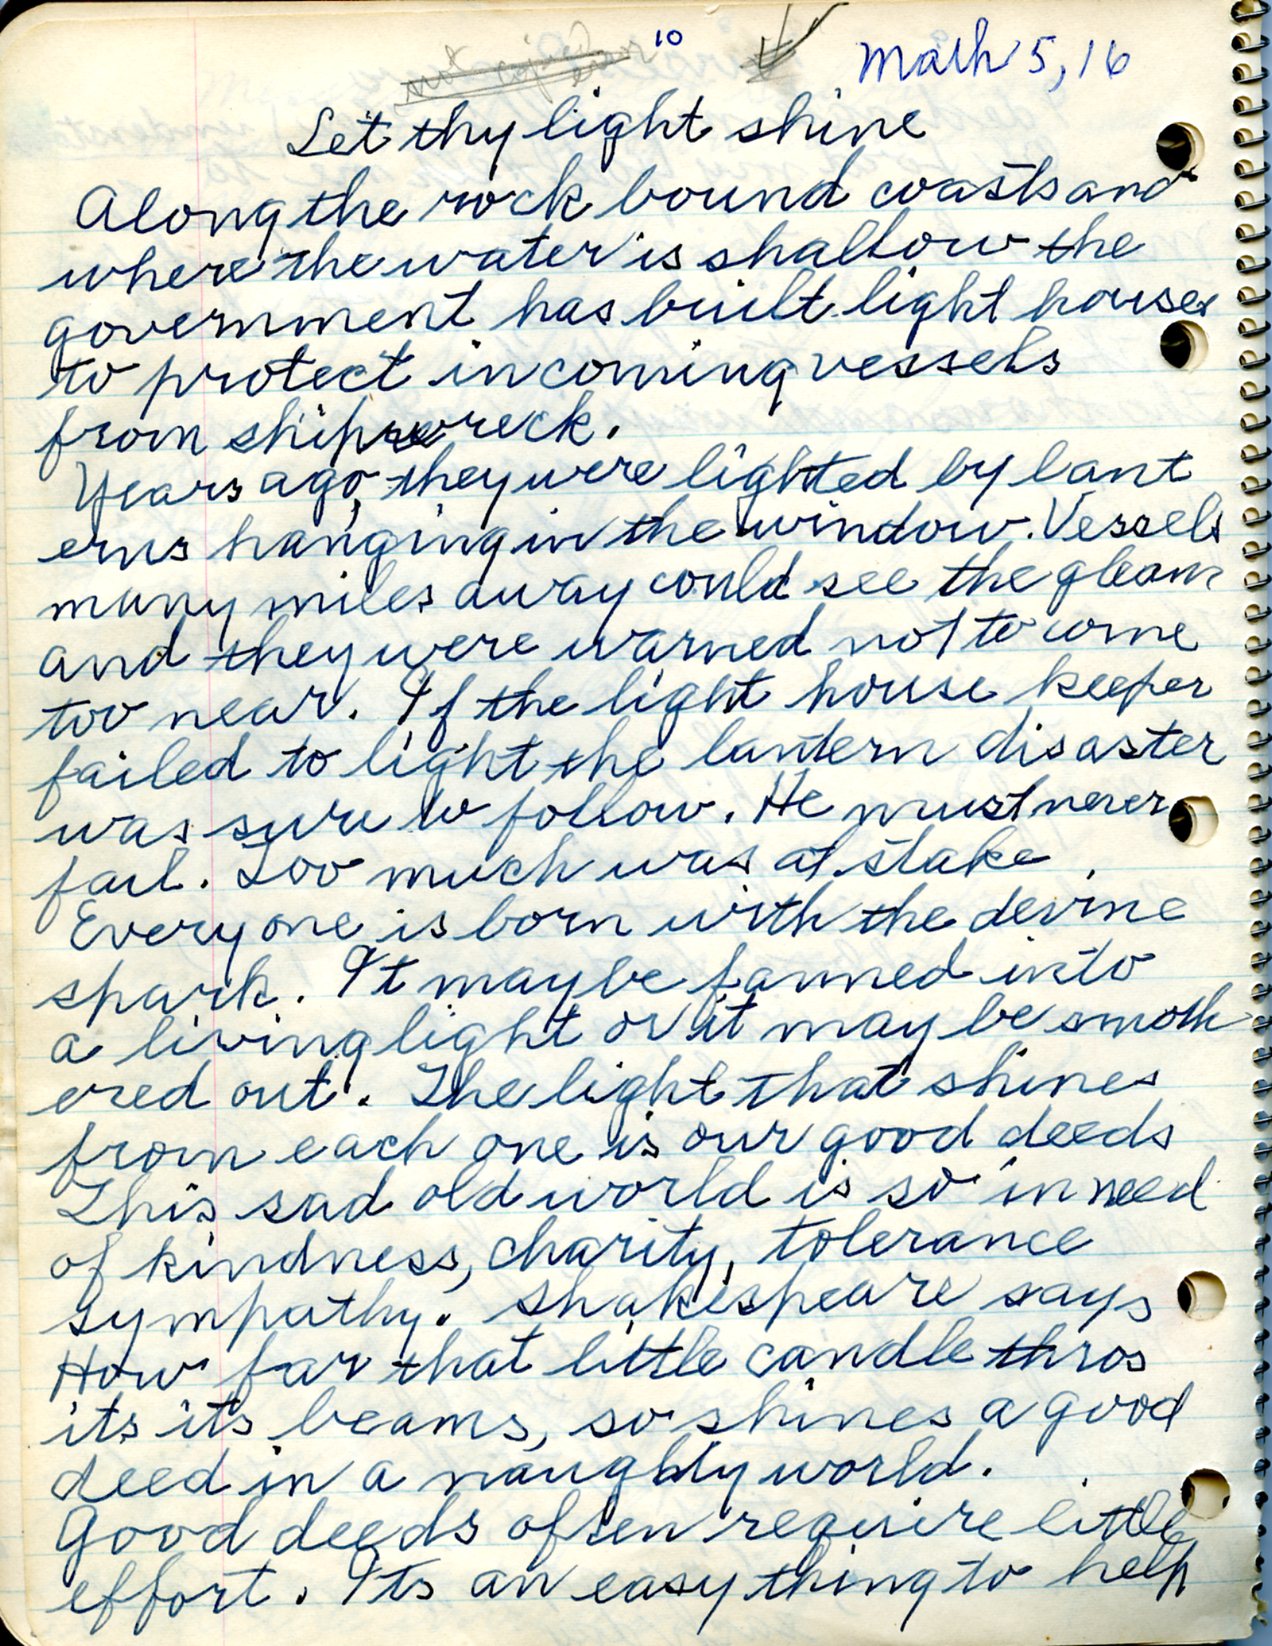 10
Math 5, 16
Let thy light shine
Along the rock bound coasts and
where the water is shallow the
government has built light houses
to protect incoming vessels
from shipwreck.
Years ago, they were lighted by lant
erns hanging in the window. Vessels
many miles away could see the gleam
and they were warned not to come
too near. If the light house keeper
failed to light the lantern disaster
was sure to follow. He must never
fail. Too much was at stake
Every one is born with the devine
spark. It may be fanned into
a living light or it may be smoth
ered out. The light that shines
from each one is our good deeds
This sad old world is so in need
of kindness, charity, tolerance
sympathy. Shakespeare says
How far that little candle thros
its its beams, so shines a good
deed in a naughty world.
Good deeds often require little
effort. Its an easy thing to help